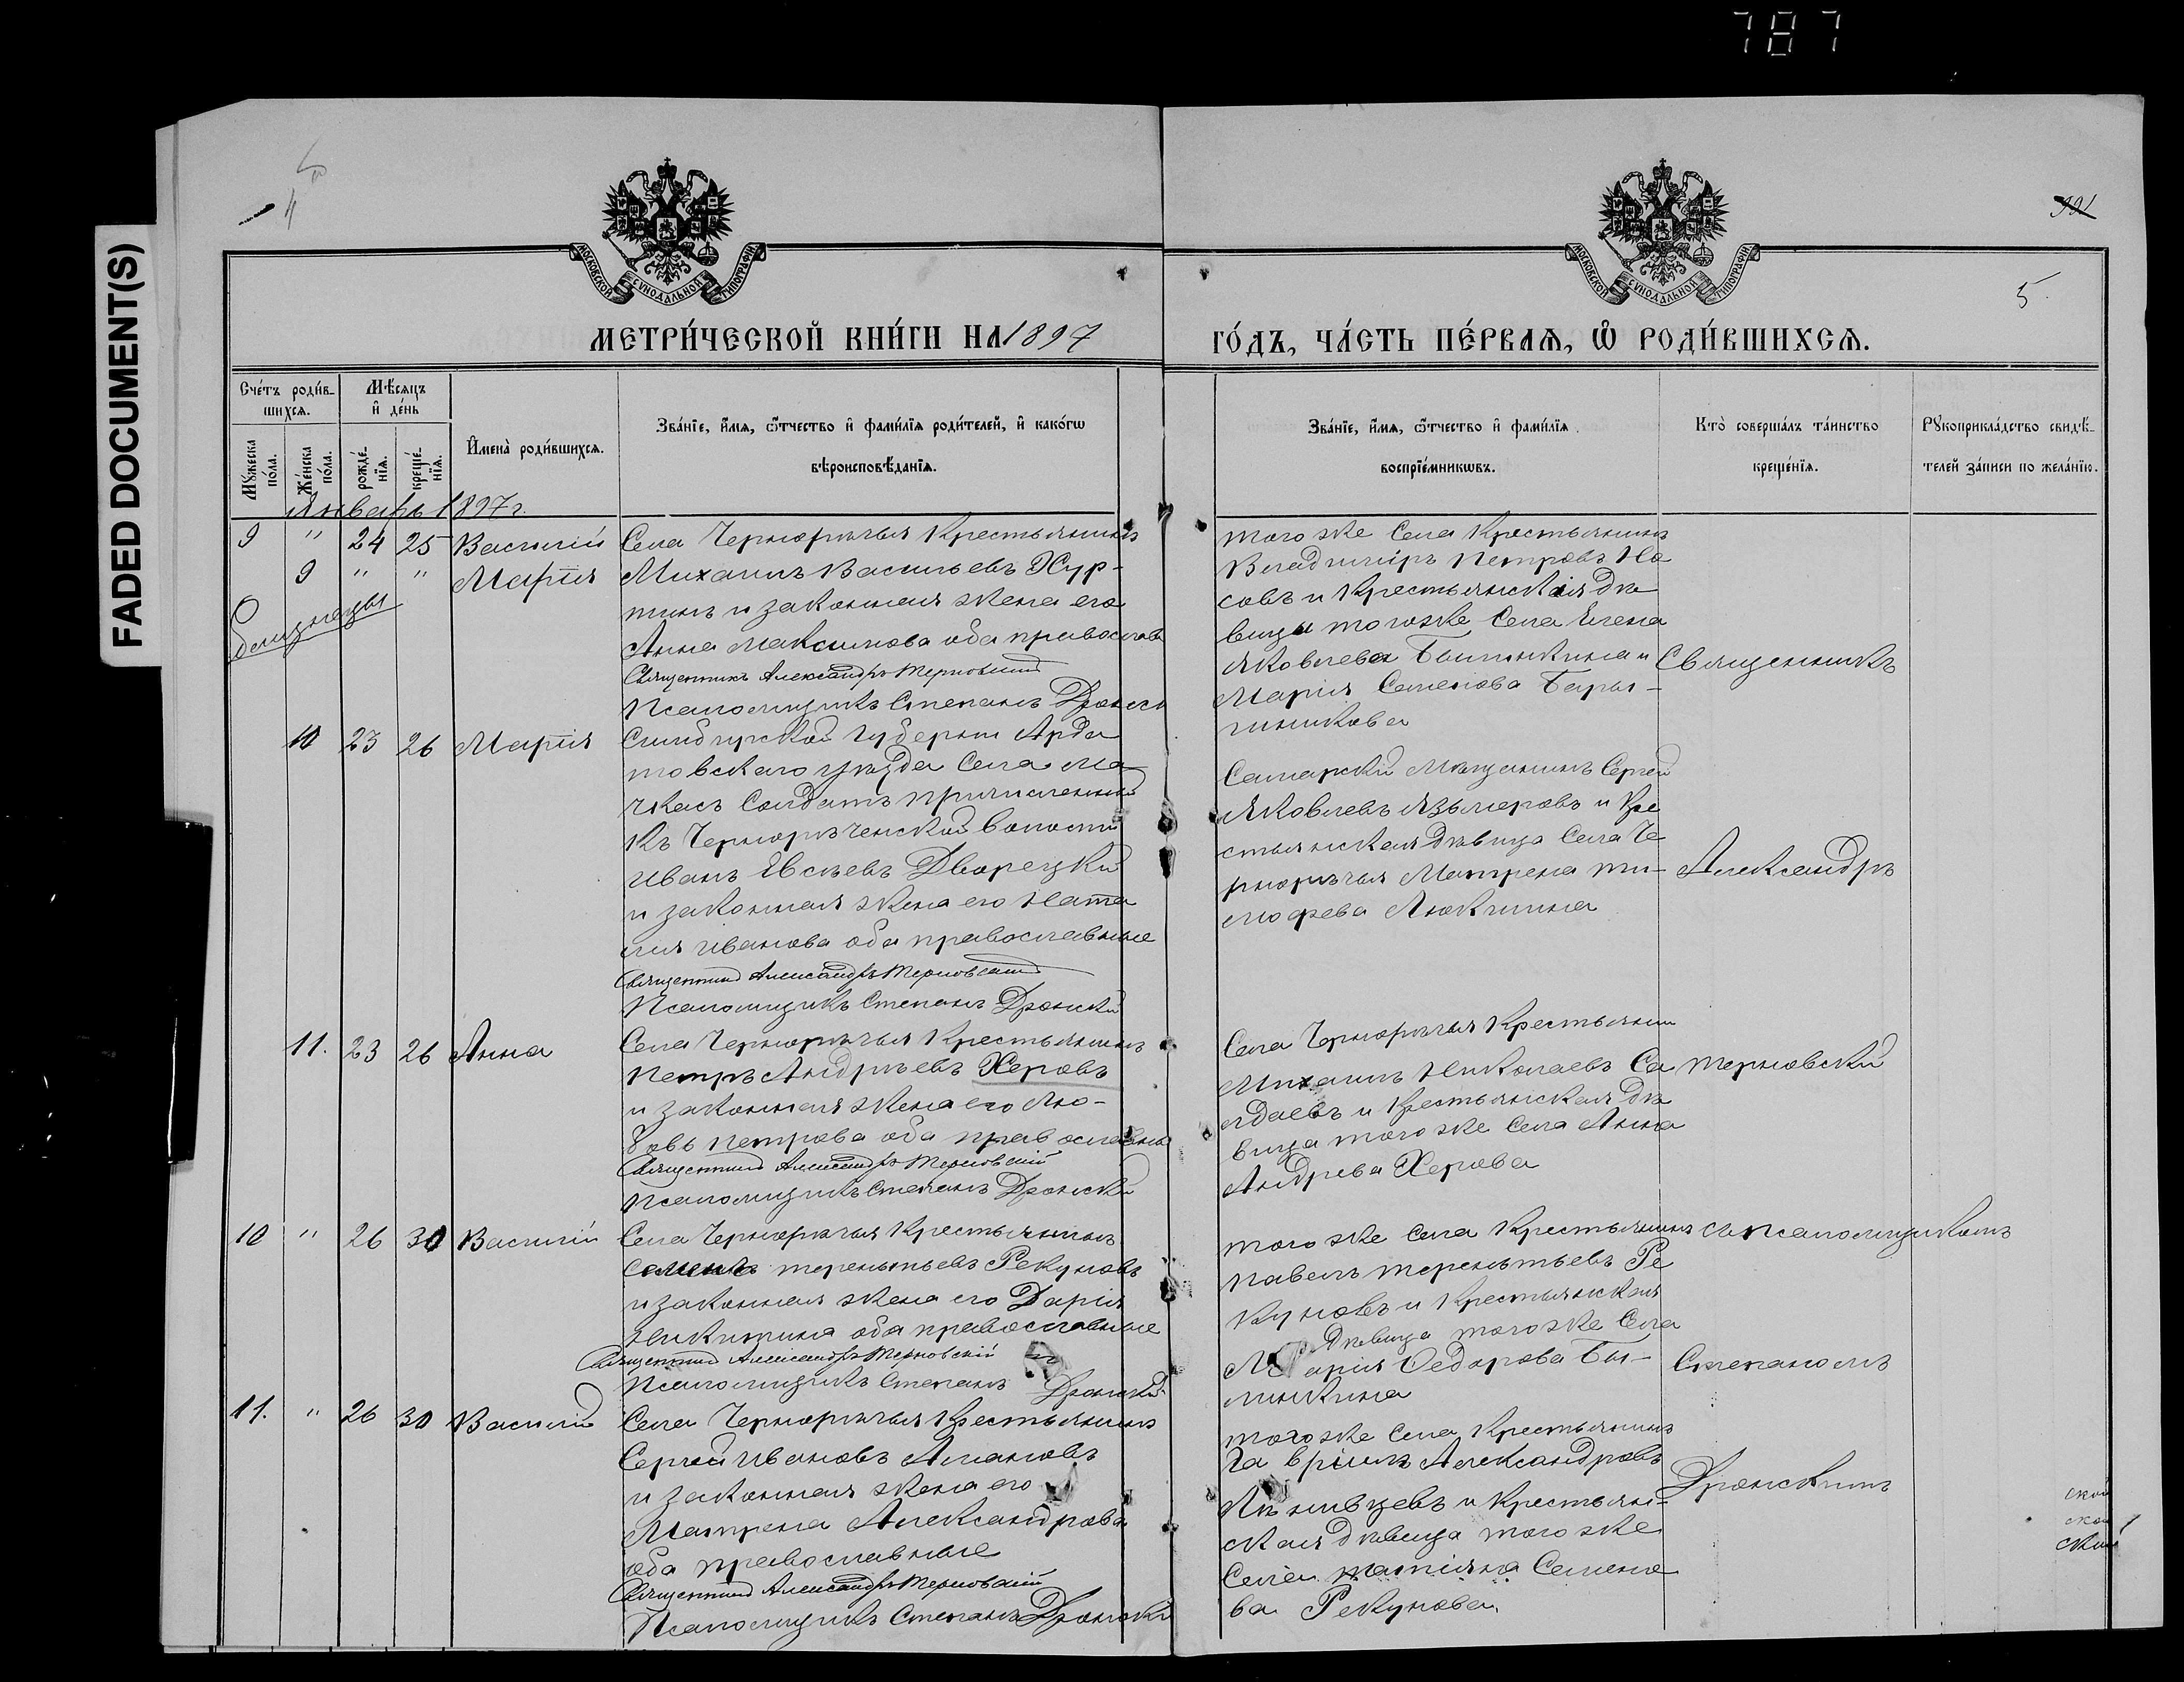 787
FADED DOCUMENT(S)
4
5.
МОСКОВСКОЙ СѴНОДАЛЬНОЙ ТИПОГРАФІИ
МОСКОВСКОЙ СѴНОДАЛЬНОЙ ТИПОГРАФІИ
МЕТРИ́ЧЕСКОЙ КНИ́ГИ НА 1897
ГО́ДЪ, ЧА́СТЬ ПЕ́РВАѦ, Ѿ РОДИ́ВШИХСѦ.
Сче́тъ роди́в-
шихсѧ.
Мꙋжеска по́ла.
Же́нска по́ла.
Мѣ́сѧцъ
и҆ де́нь
рожде́-
нїѧ.
креще́-
нїѧ.
И҆мена̀ роди́вшихсѧ.
Зва́нїе, и҆́мѧ, ѻ҆́тчество и҆ фами́лїѧ роди́телей, и҆ како́гѡ
вѣроисповѣ́данїѧ.
Зва́нїе, и҆́мѧ, ѻ҆́тчество и҆ фами́лїѧ
воспрїе́мникѡвъ.
Кто̀ соверша́лъ та́инство
креще́нїѧ.
Рꙋкоприкла́дство свидѣ́-
телей за́писи по жела́нїю.
Январь 1897 г.
9 " 24 25 Василій
9 " " Марія
близнецы
Села Чернорѣчья Крестьянинъ
Михаилъ Васильевъ Хур-
тинъ и законная жена его
Анна Максимова оба православ
Священникъ Александръ Терновский
Псаломщикъ Степанъ Дронск
тогоже Села Крестьянинъ
Владиміръ Петровъ Но
совъ и Крестьянская дѣ
вицы тогоже Села Елена
Яковлева Былинкина и
Марія Семенова Бары-
шникова
Священникъ
10 23 26 Марія
Симбирской губерніи Арда
товскаго уѣзда Села Ма
чкасъ Солдатъ причисленный
Къ Чернорѣченской волости
Иванъ Евсѣевъ Дворецкій
и законная жена его Ната
лія Иванова оба православные
Священникъ Александръ Терновский
Псаломщикъ Степанъ Дронскій
Самарскій Мѣщанинъ Сергей
Яковлевъ и Кре
стьянская дѣвица Села Че
рнорѣчья Матрена Ти-
мофева Люкшина
Александръ
11. 23 26 Анна
Села Чернорѣчья Крестьянинъ
Петръ Андрѣевъ Херовъ
и законная жена его Лю-
бовь Петрова оба православны
Священникъ Александръ Терновский
Псаломщикъ Степанъ Дронскій
Села Чернорѣчья Крестьянин
Михаилъ Николаевъ Са
лдаевъ и Крестьянская дѣ
вица тогоже Села Анна
Андрева Херова
Терновскій
10 " 26 30 Василій
Села Чернорѣчья Крестьянинъ
Семенъ Терентьевъ Рекуновъ
и законная жена его Дарія
Никитина оба православные
Священникъ Александръ Терновскій
Псаломщикъ Степанъ Дронскій
тогоже Села Крестьянинъ
Павелъ Терентьевъ Ре
куновъ и Крестьянская
дѣвица тогоже Села
Марія Ѳедорова Бы-
линкина
съ псаломщикомъ
Степаномъ
11. " 26 30 Василій
Села Чернорѣчья Крестьянинъ
Сергей Ивановъ Алановъ
и законная жена его
Матрена Александрова
оба православные
Священникъ Александръ Терновскій
Псаломщикъ Степанъ Дронскі
тогоже Села Крестьянинъ
Гавріилъ Александровъ
Лѣнивцевъ и Крестьян-
ская дѣвица тогоже
Села Татіяна Семено
ва Рекунова.
Дронскимъ